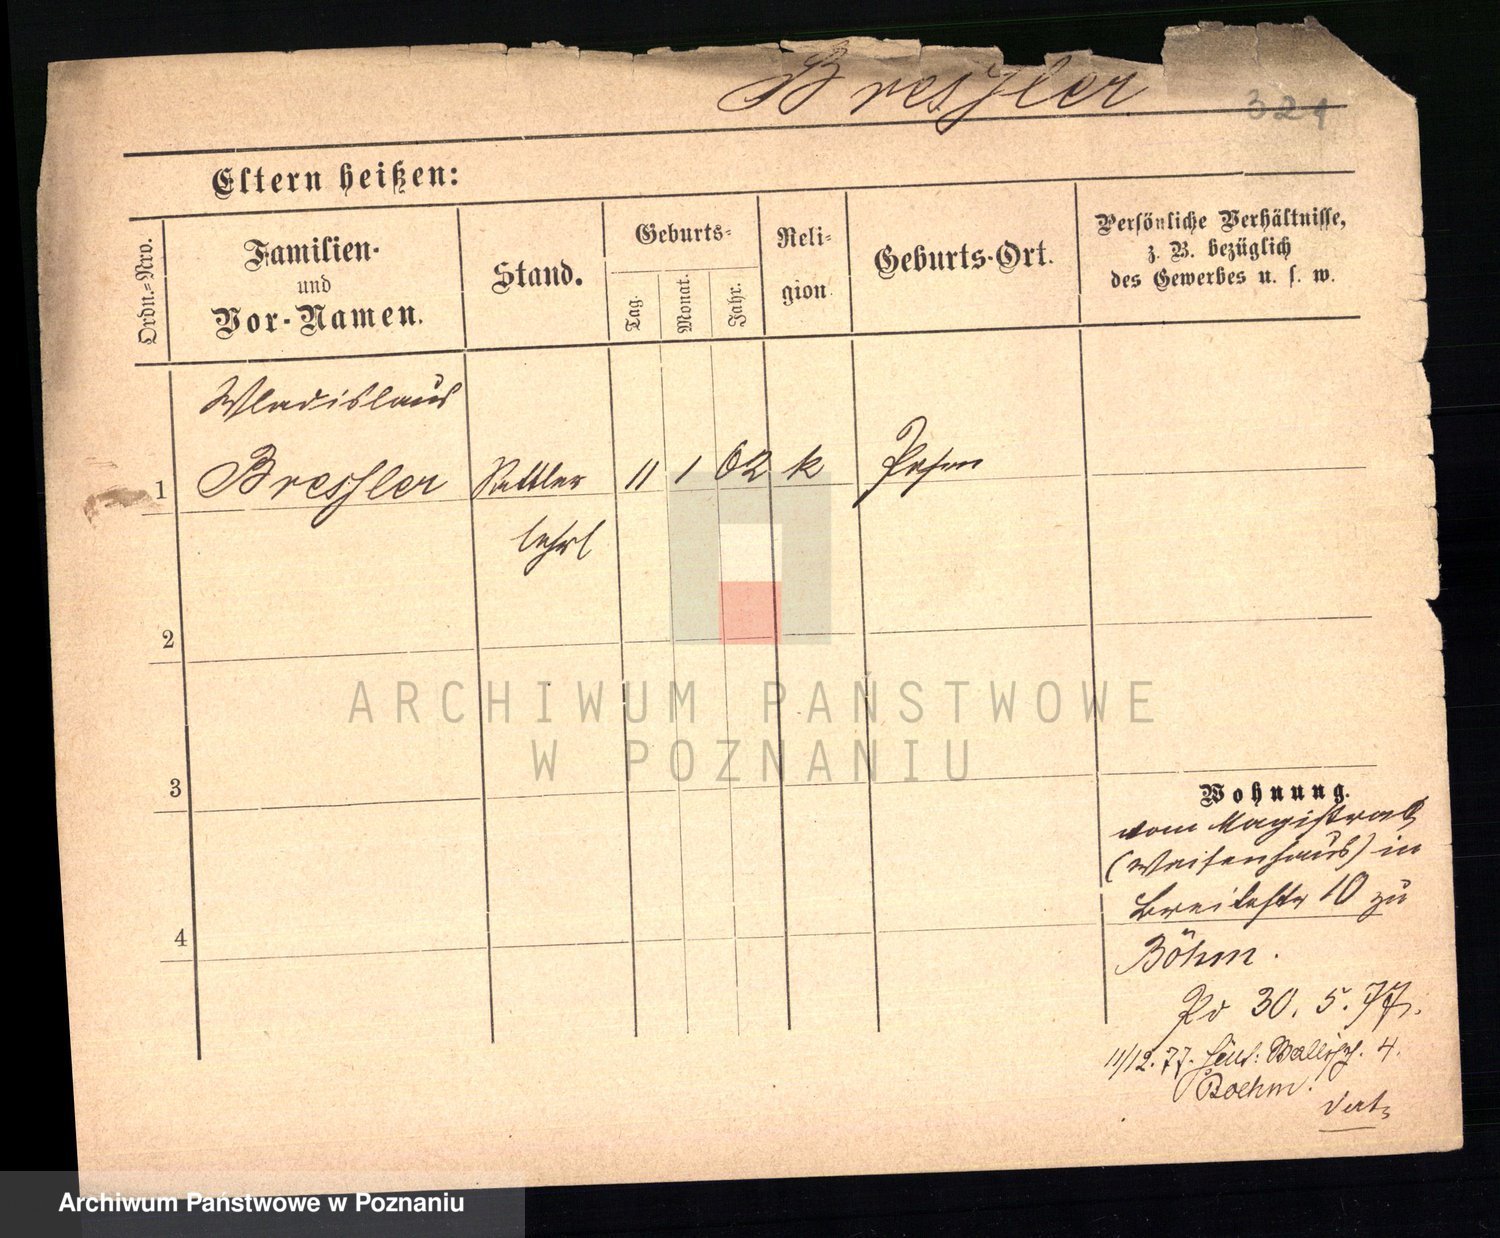 Bressler
321
Eltern heißen:
Ordn.-Nro.
Familien-
und
Vor-Namen.
Stand.
Geburts-
Tag.
Monat.
Jahr.
Reli-
gion
Geburts-Ort.
Persönliche Verhältnisse,
z. B. bezüglich
des Gewerbes u. s. w.
Wladislaus
1 Bressler Sattler 11 1 62 k Posen
lehrl
2
3
4
Wohnung.
vom Magistrat
(Waisenhaus) in
Breitestr 10 zu
Böhm.
30. 5. 77.
11/12. 77. Wallisch. 4.
Boehm.
ARCHIWUM PAŃSTWOWE
W POZNANIU
Archiwum Państwowe w Poznaniu